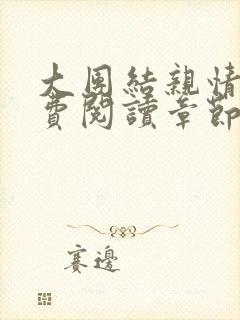 大团結親情
費閱讀章節
賽邊